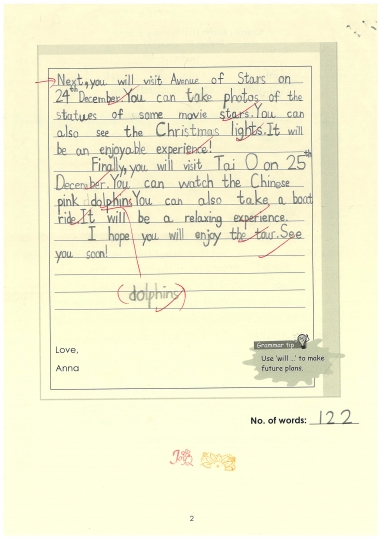 Next, you will visit Avenue of Stars on
24th December. You can take photos of the
statues of some movie stars. You can
also see the Christmas lights. It will
be an enjoyable experience!
Finally, you will visit Tai O on 25th
December. You can watch the Chinese
pink dolphins. You can also take a boat
ride. It will be a relaxing experience.
I hope you will enjoy the tour. See
you soon!
(dolphins)
Love,
Anna
Grammar tip
Use 'will ...' to make
future plans.
No. of words: 122
2